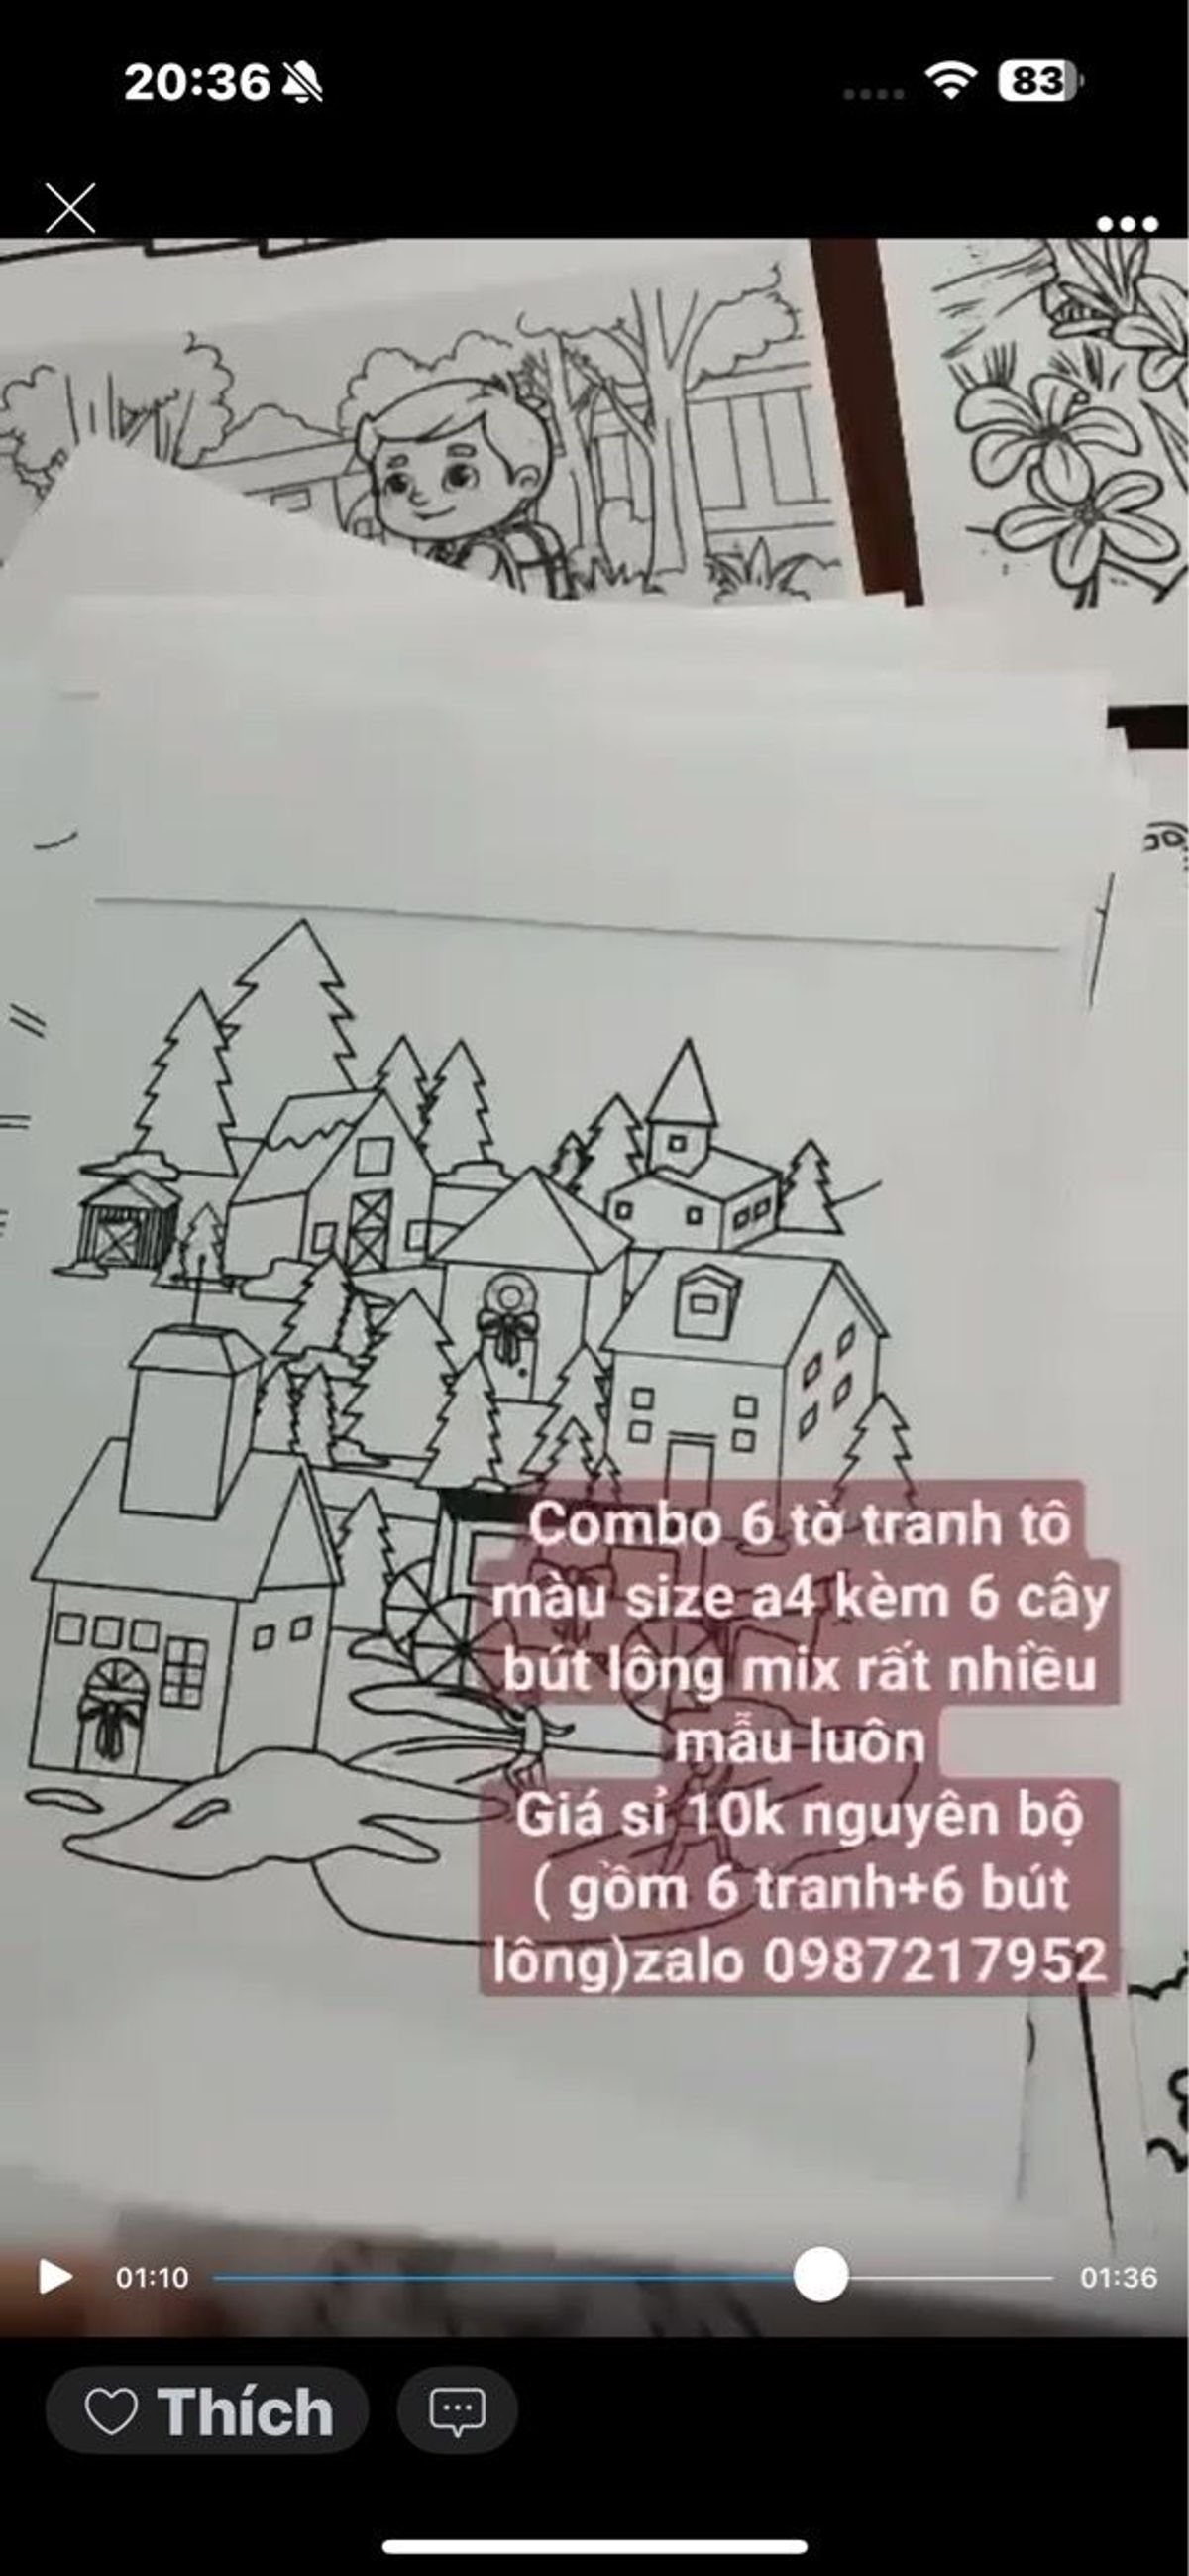 20:36
83
Combo 6 tờ tranh tô
màu size a4 kèm 6 cây
bút lông mix rất nhiều
mẫu luôn
Giá sỉ 10k nguyên bộ
( gồm 6 tranh+6 bút
lông)zalo 0987217952
01:10
01:36
Thích